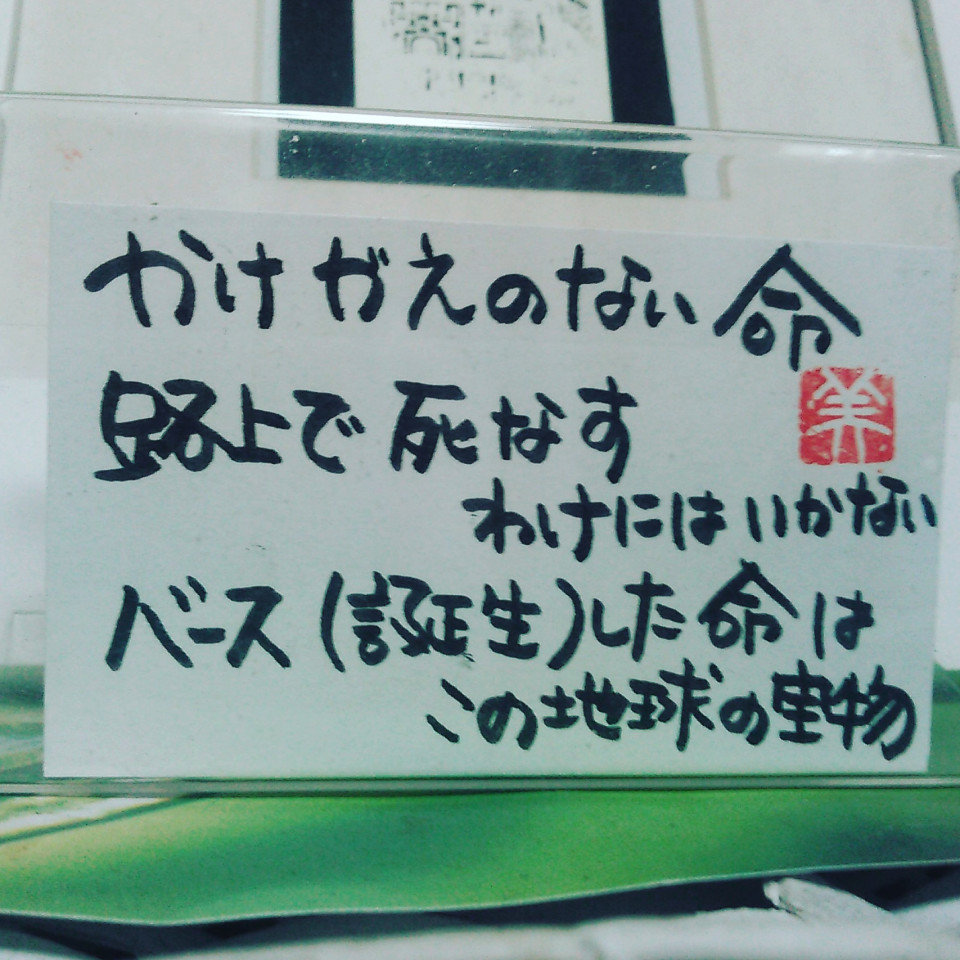 かけがえのない命
路上で死なす
わけにはいかない
バース(誕生)した命は
この地球の宝物